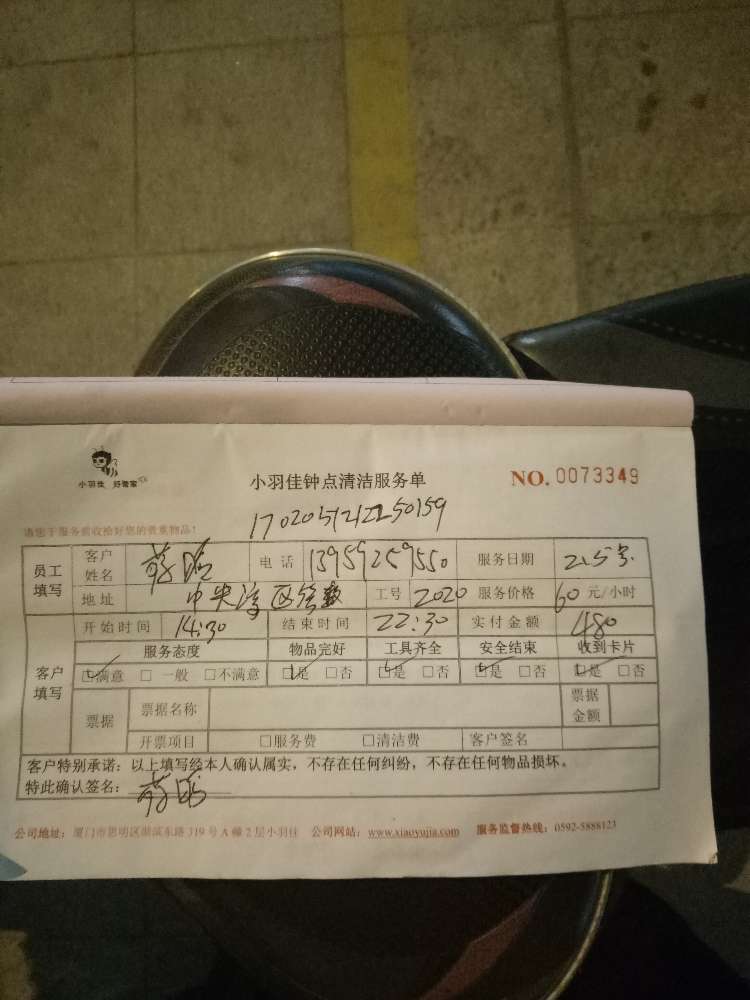 小羽佳 好管家
小羽佳钟点清洁服务单
NO. 0073349
请您于服务前收拾好您的贵重物品!
员工填写
客户姓名 蒋
电话 13959259550
服务日期 2.5号
地址 中央 区
工号 2020
服务价格 60 元/小时
客户填写
开始时间 14:30
结束时间 22:30
实付金额 480
服务态度 物品完好 工具齐全 安全结束 收到卡片
☑满意 □一般 □不满意 ☑是 □否 ☑是 □否 ☑是 □否 ☑是 □否
票据
票据名称
票据金额
开票项目 □服务费 □清洁费 客户签名
客户特别承诺:以上填写经本人确认属实,不存在任何纠纷,不存在任何物品损坏。
特此确认签名: 蒋
公司地址:厦门市思明区湖滨东路 319 号 A 幢 2 层小羽佳 公司网站:www.xiaoyujia.com 服务监督热线:0592-5888123